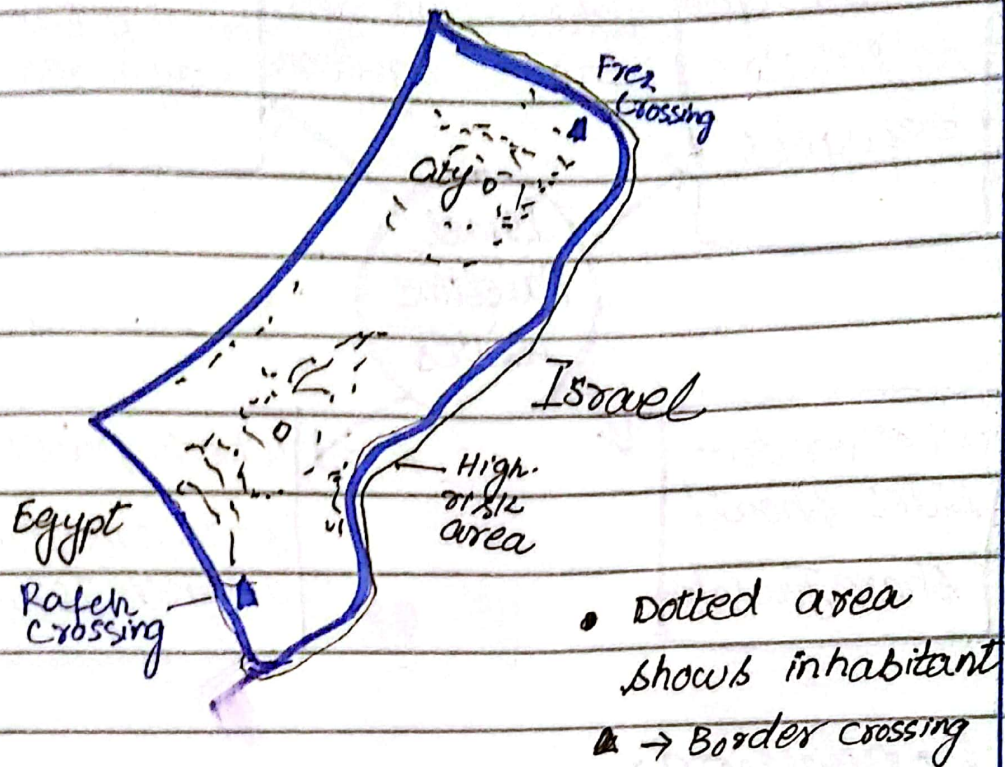 Frez
Crossing
City
Israel
High
risk
area
Egypt
Rafeh
Crossing
• Dotted area
shows inhabitant
▲ → Border crossing